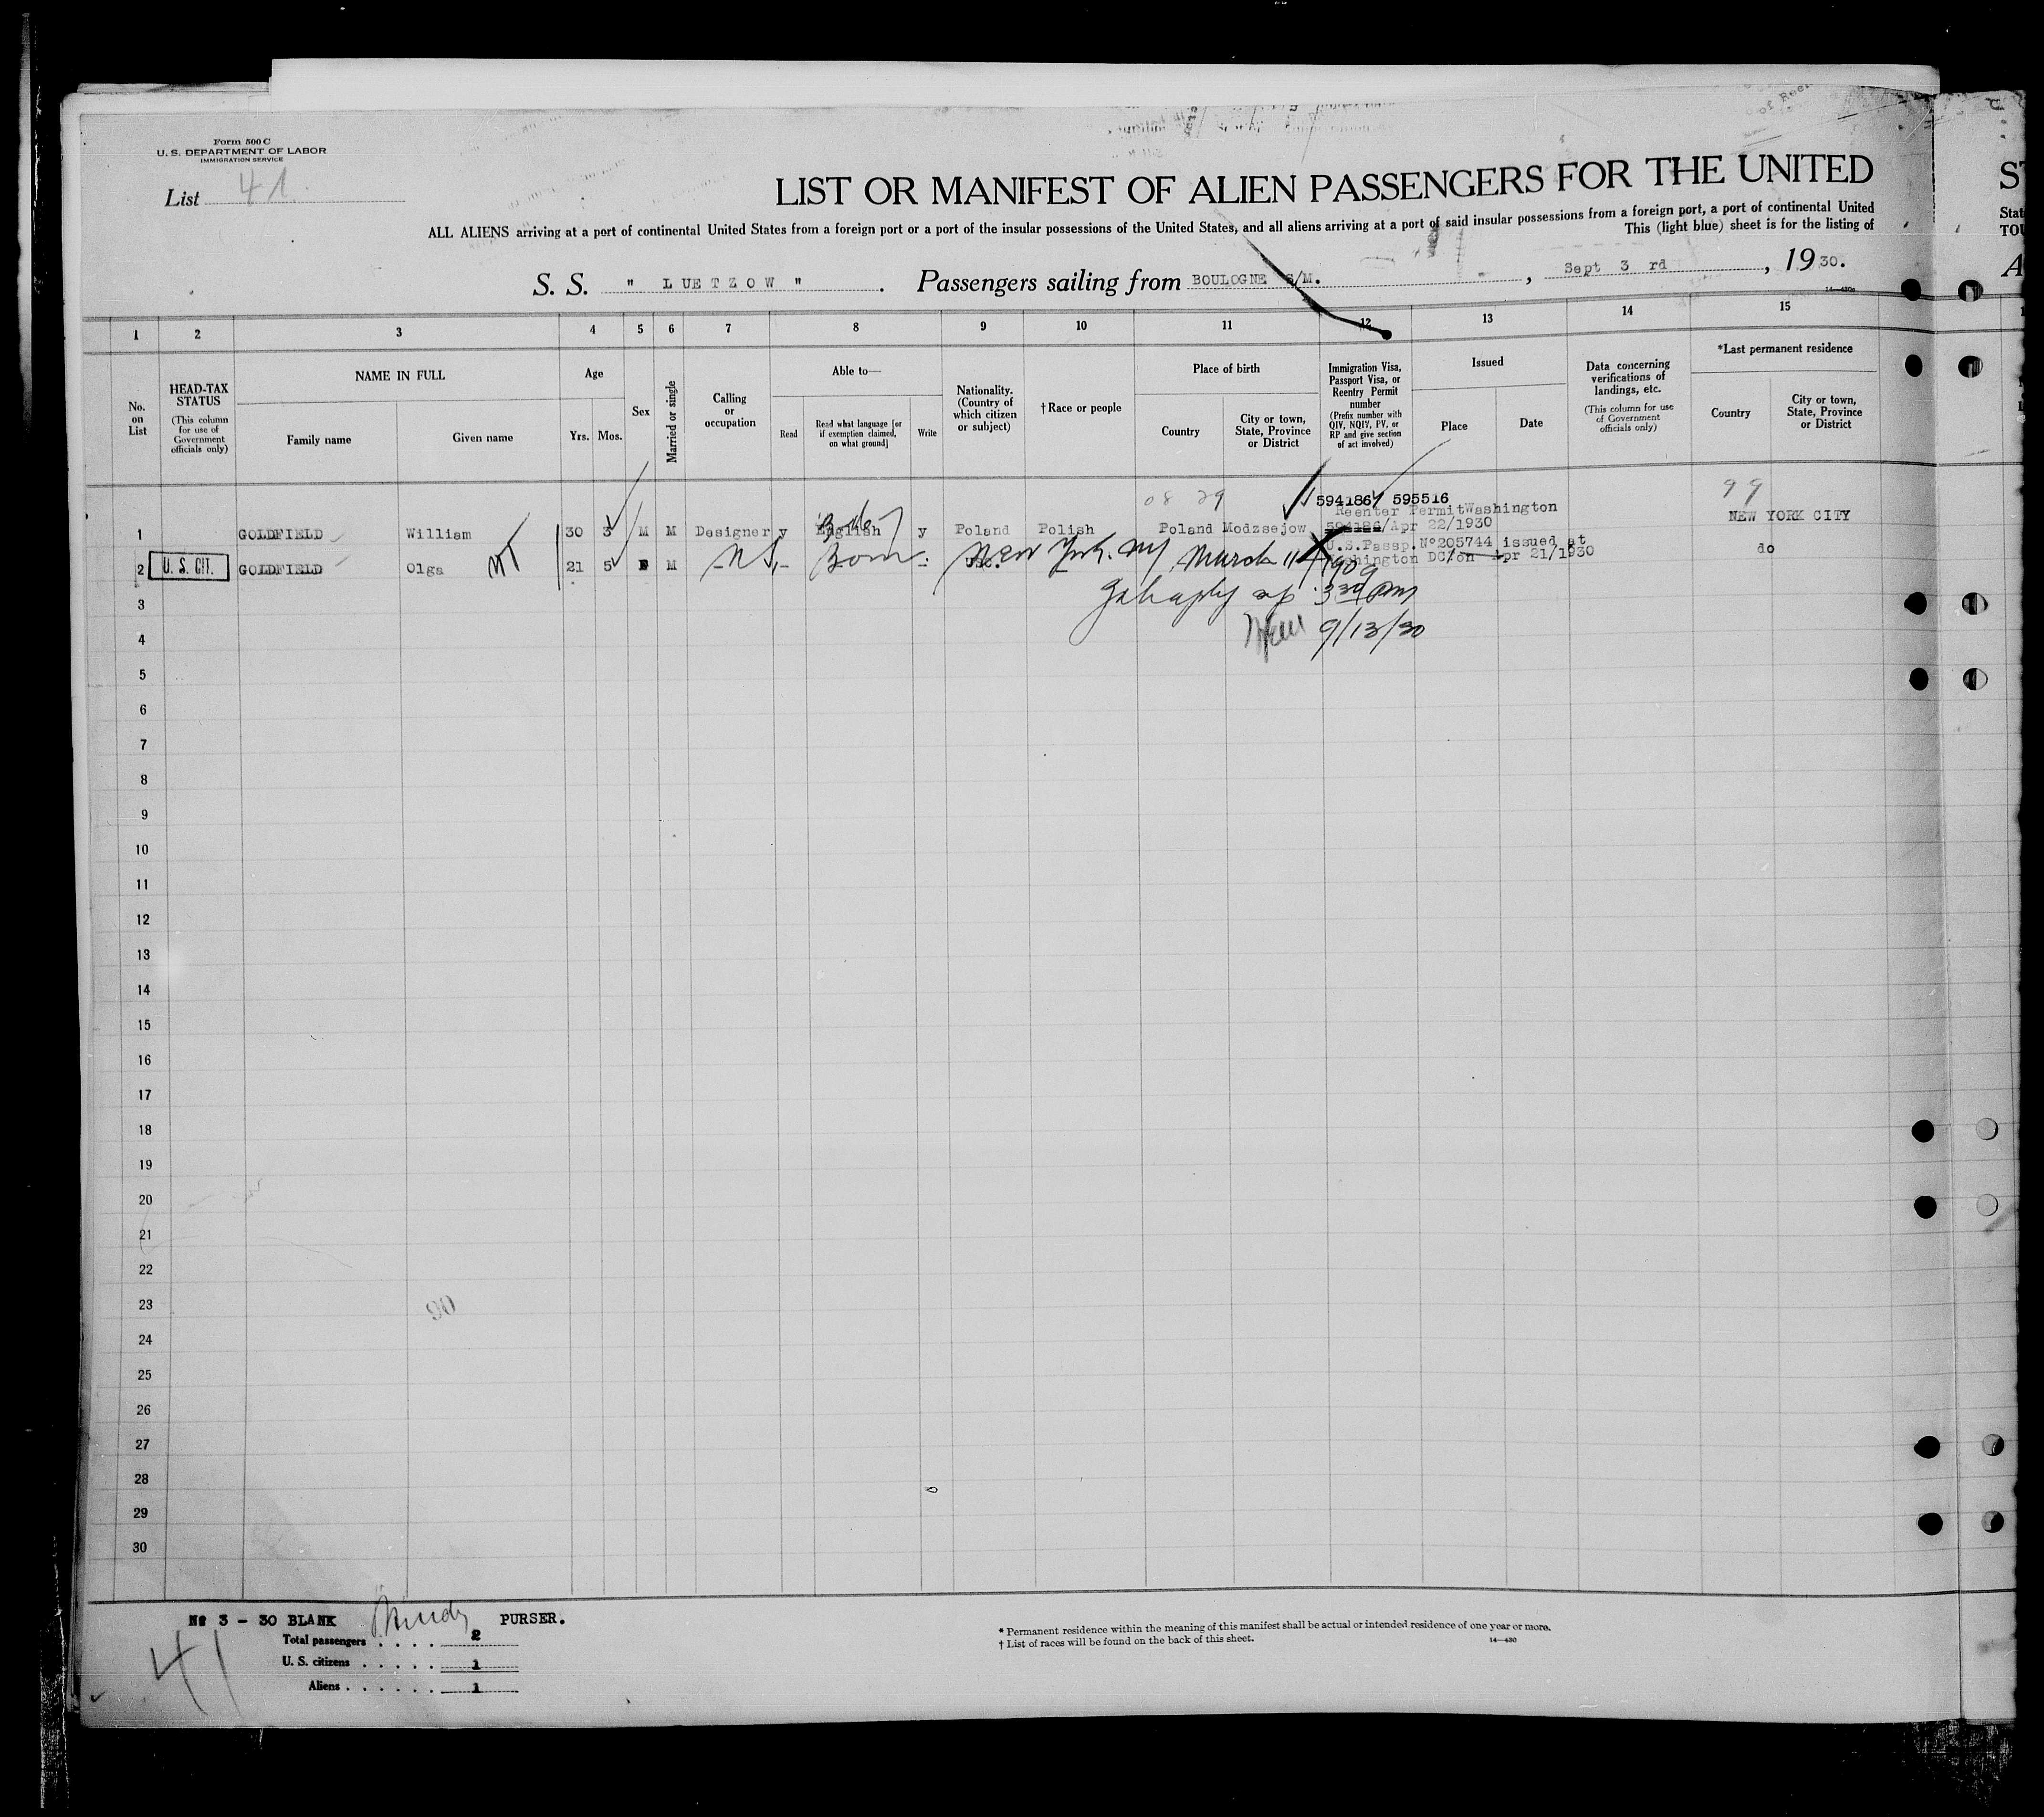 Form 500 C
U. S. DEPARTMENT OF LABOR
IMMIGRATION SERVICE
List 41
LIST OR MANIFEST OF ALIEN PASSENGERS FOR THE UNITED
ST
ALL ALIENS arriving at a port of continental United States from a foreign port or a port of the insular possessions of the United States, and all aliens arriving at a port of said insular possessions from a foreign port, a port of continental United
Stat
This (light blue) sheet is for the listing of
TOU
S. S. " LUETZOW " . Passengers sailing from BOULOGNE S/M. , Sept 3 rd , 1930.
A
14-430c
1 2 3 4 5 6 7 8 9 10 11 12 13 14 15
No. on List
HEAD-TAX STATUS
(This column for use of Government officials only)
NAME IN FULL
Family name
Given name
Age
Yrs.
Mos.
Sex
Married or single
Calling or occupation
Able to—
Read
Read what language [or if exemption claimed, on what ground]
Write
Nationality. (Country of which citizen or subject)
†Race or people
Place of birth
Country
City or town, State, Province or District
Immigration Visa, Passport Visa, or Reentry Permit number
(Prefix number with QIV, NQIV, PV, or RP and give section of act involved)
Issued
Place
Date
Data concerning verifications of landings, etc.
(This column for use of Government officials only)
*Last permanent residence
Country
City or town, State, Province or District
08 29 594186 595516 99
Reenter Permit Washington
1 GOLDFIELD William 30 3 M M Designer y English y Poland Polish Poland Modzsejow 594186/Apr 22/1930 NEW YORK CITY
U.S.Passp.N°205744 issued at
2 U. S. CIT. GOLDFIELD Olga 21 5 F M Born: New York. NY March 11 1909 Washington DC/on Apr 21/1930 do
3 3 30 pm
4 9/13/30
5
6
7
8
9
10
11
12
13
14
15
16
17
18
19
20
21
22
23
90
24
25
26
27
28
29
30
Nº 3 - 30 BLANK PURSER.
Total passengers . . . . 2
U. S. citizens . . . . . 1
Aliens . . . . . . 1
41
* Permanent residence within the meaning of this manifest shall be actual or intended residence of one year or more.
† List of races will be found on the back of this sheet.
14—430